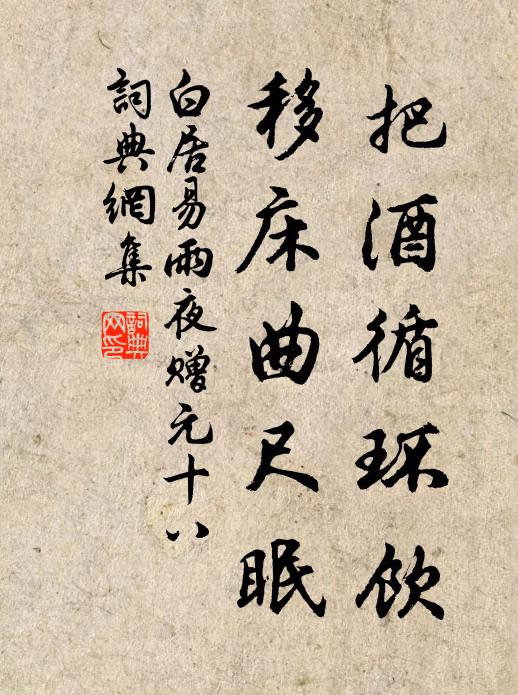 把酒循环饮
移床曲尺眠
白居易雨夜赠元十八
詞典網集
詞典网印